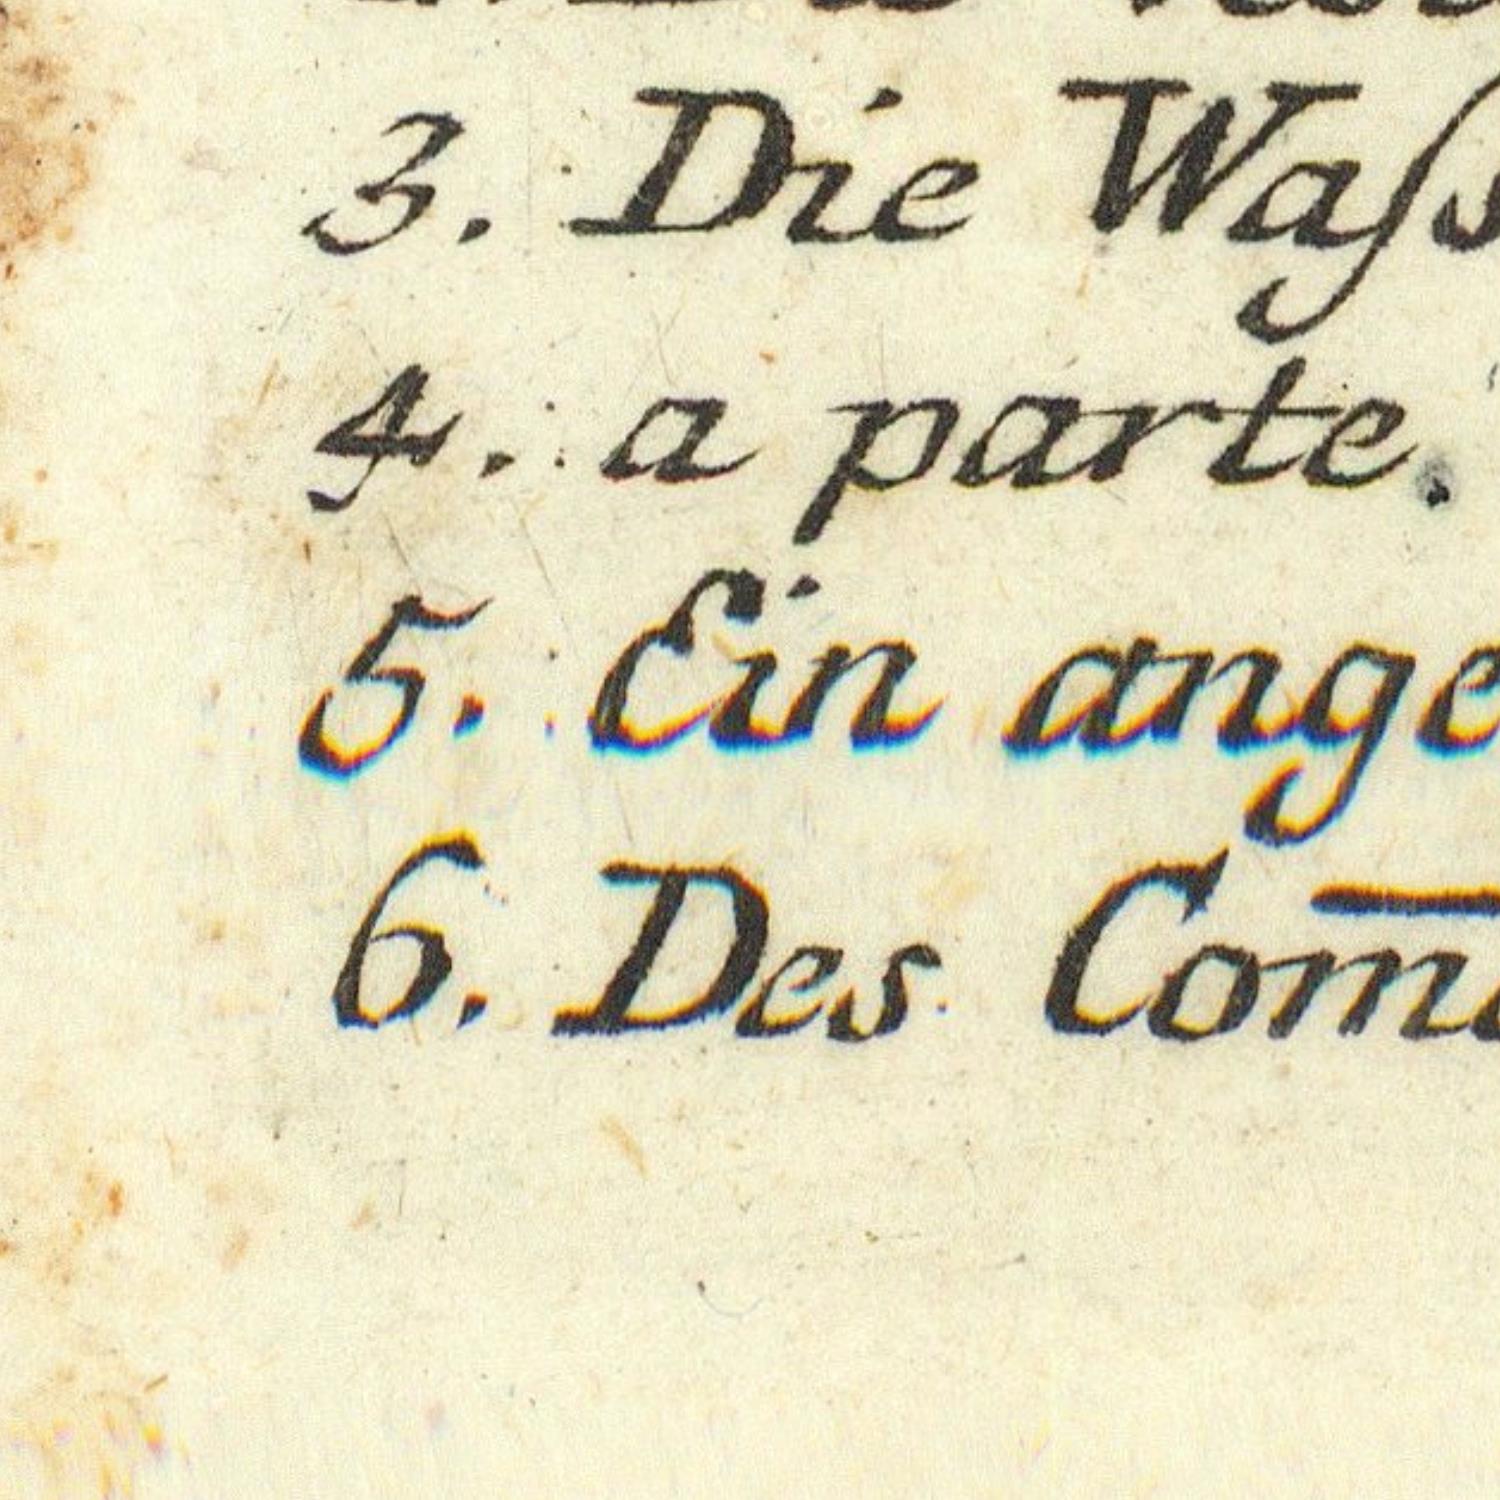 3. Die Waſs
4. a parte.
5. Ein ange
6. Des Com̅